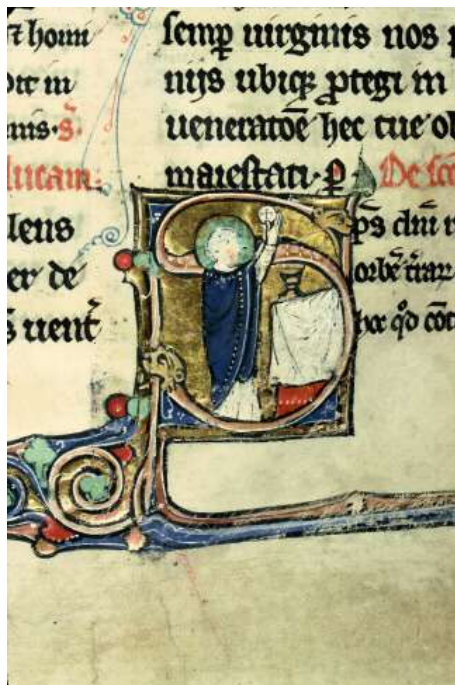 homi
in
nis. s̄.
lucam.
leus
er de
uent᷑
semꝑ uirginis nos p
nijs ubiqꝫ ꝓtegi in
ueneratōe hec tue ob
maiestati. ꝑ. De sc̄o
Sp̄s dn̄i r
orbē t᷑rar
hoc qd̄ cōt